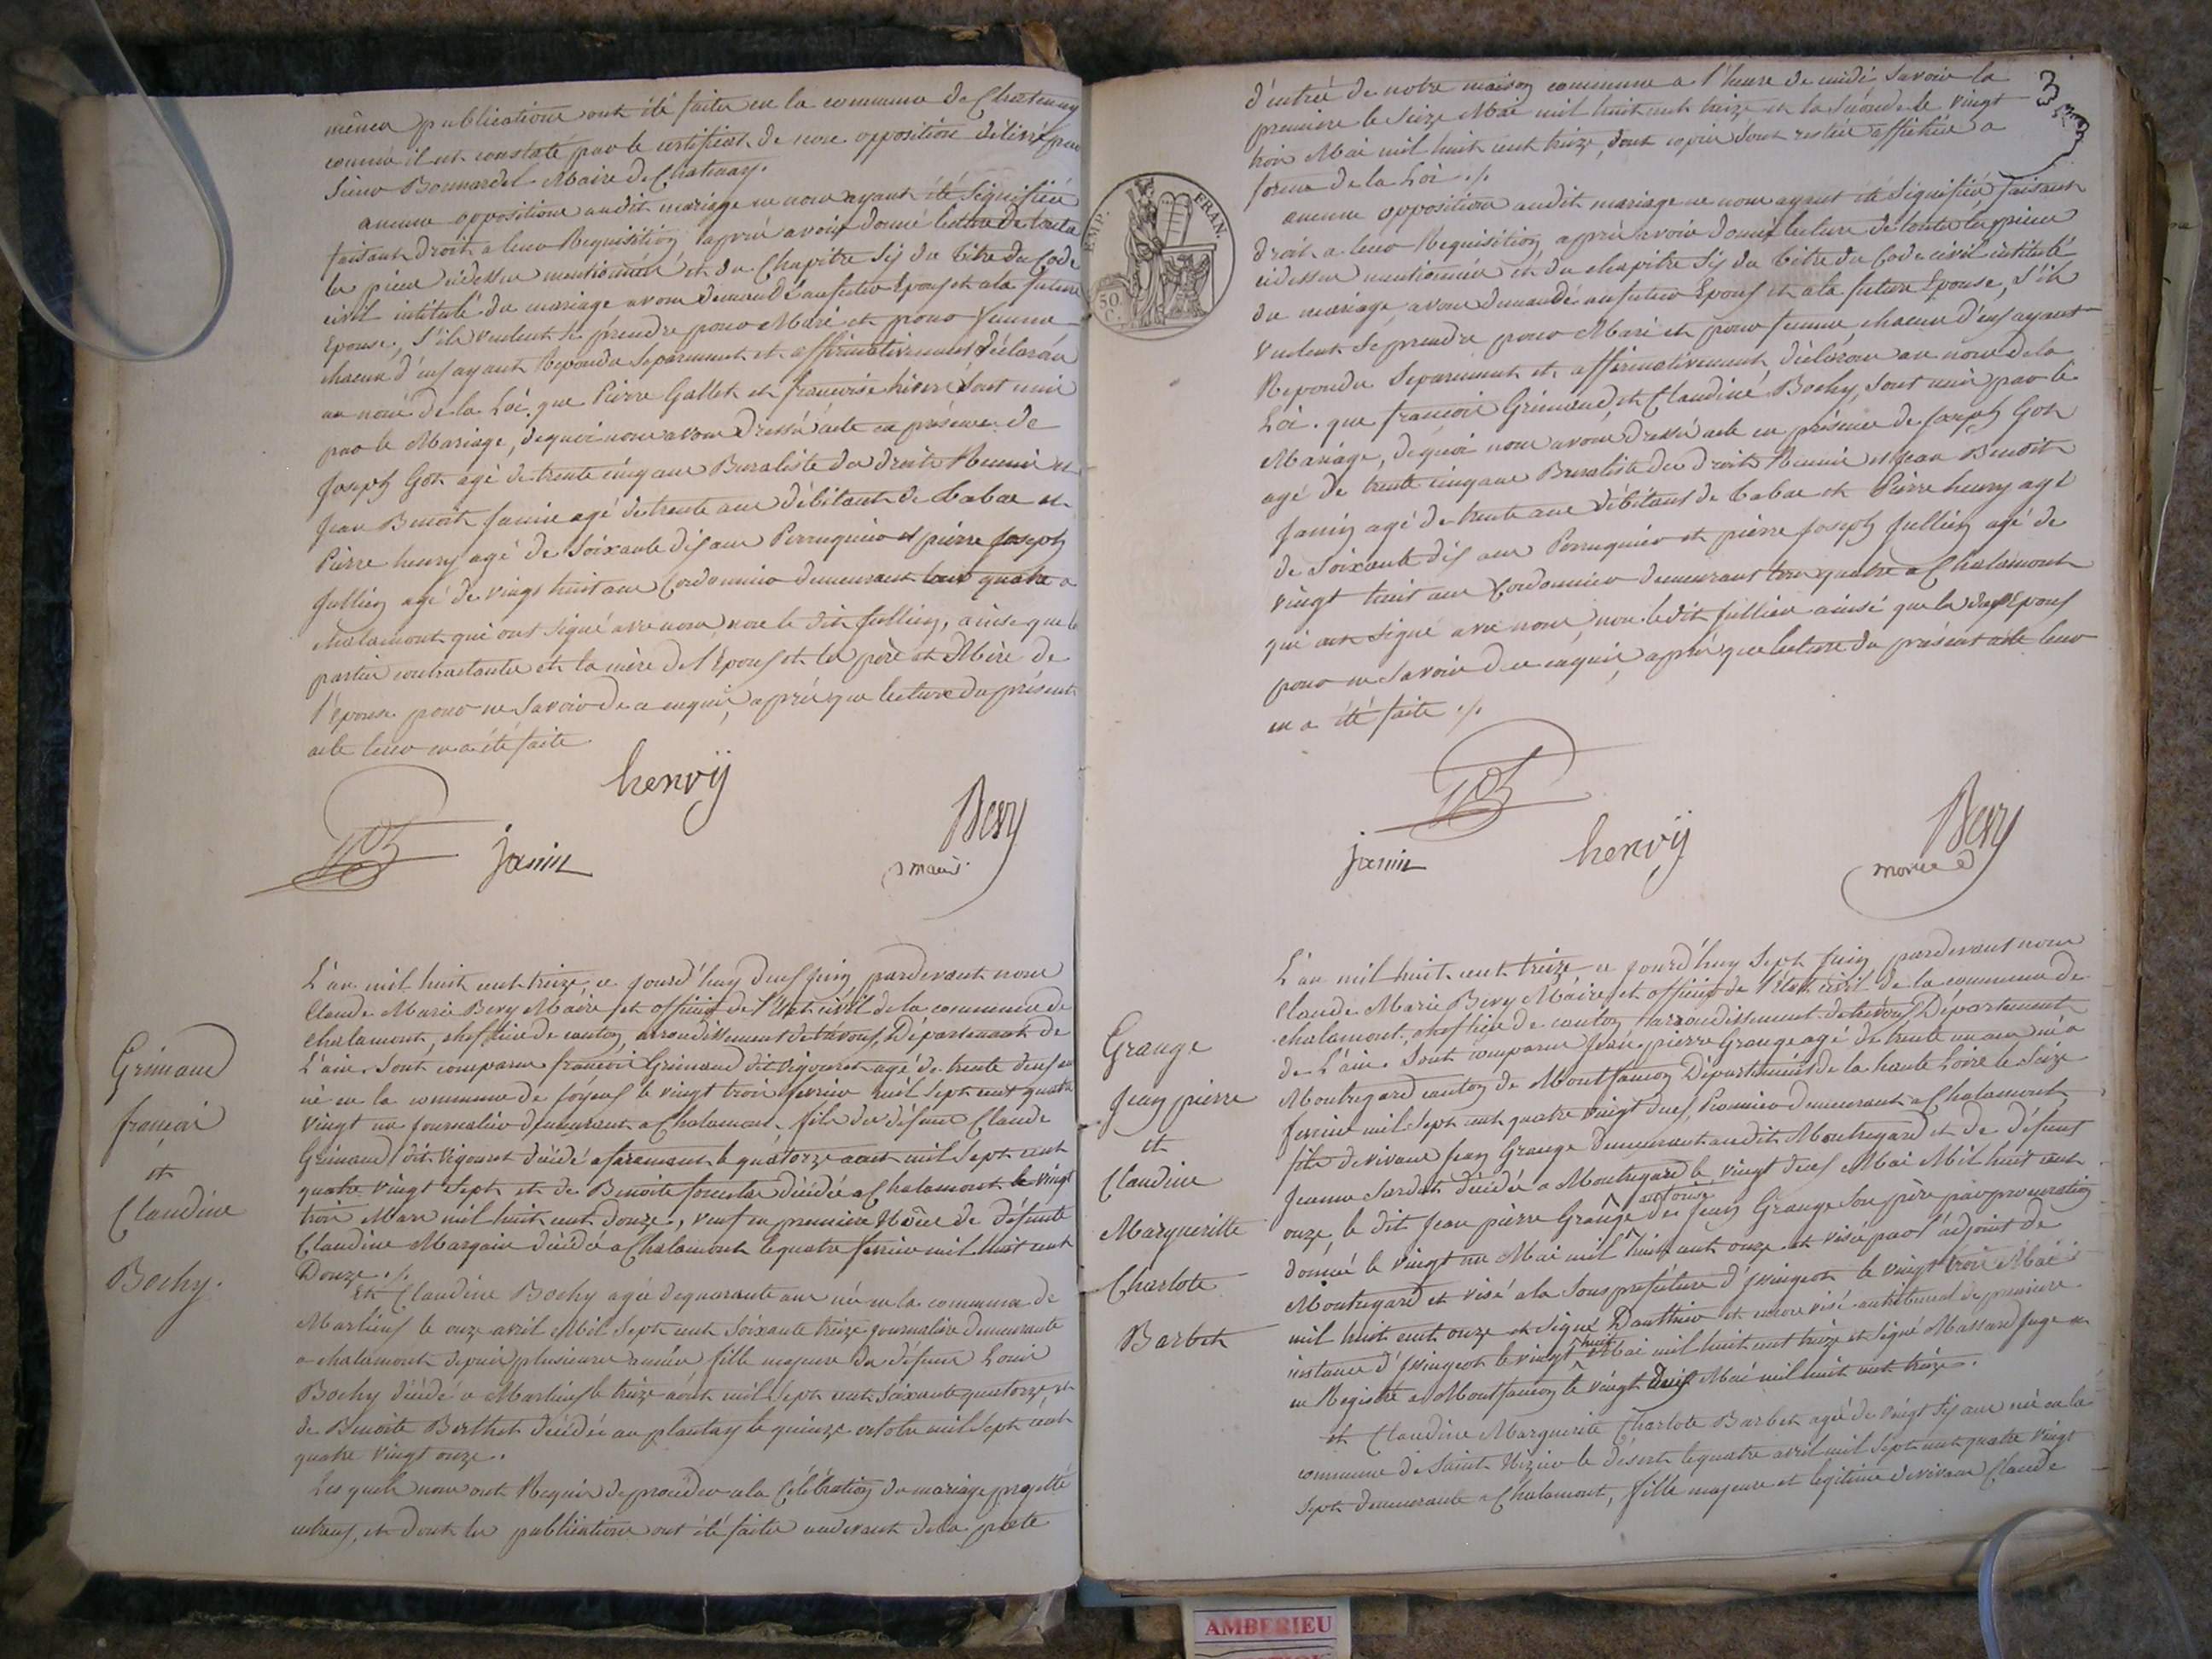 mêmes publications ont été faites en la commune de Chatenay
comme il est constaté par le certificat de non opposition délivré par
sieur Bonnardel Maire de Chatenay.
aucune opposition audit mariage ne nous ayant été signifiée
faisant droit a leur Requisition après avoir donné lecture de toutes
les pièces cidessus mentionnées et du Chapitre Six du titre du Code
civil intitulé du mariage avons demandé au futur Epoux et a la future
Epouse, s'ils veulent se prendre pour Mari et pour femme
chacun d'eux ayant Repondu separement et affirmativement déclarons
au nom de la Loi que Pierre Gallet et françoise hivert sont unis
par le Mariage, dequoi nous avons dressé acte en présence de
Joseph Got agé de trente cinq ans Buraliste des droits Reunis et
Jean Benoit Janin agé de trente ans débitant de tabac et
Pierre henry agé de soixante dix ans Perruquier et pierre Joseph
Jullien agé de vingt huit ans Cordonnier demeurant tous quatre a
chalamont qui ont signé avec nous, non le dit Jullien, ainsi que les
parties contractantes et la mère de l'Epoux et les père et Mère de
l'épouse pour ne savoir de ce enquis, après que lecture du présent
acte leur en a été faite
henrÿ
Got
janin
Bevy
maire
Grimaud
françois
et
Claudine
Bochy.
L'an mil huit cent treize, ce jourd'huy deux juin, pardevant nous
Claude Marie Bevy Maire et officier de l'état civil de la commune de
chalamont, cheflieu de canton, arrondissement de trévoux, Département de
L'ain. Sont comparus françois Grimaud dit Vigouret agé de trente deux ans
né en la commune de foyeux le vingt trois fevrier mil sept cent quatre
vingt un journalier demeurant a Chalamont, fils des défunts Claude
Grimaud dit Vigouret décédé a faramant le quatorze aout mil sept cent
quatre vingt sept et de Benoite forestier décédée a Chalamont le vingt
trois Mars mil huit cent douze, veuf en première Noce de défunte
Claudine Margain décédée a Chalamont le quatre fevrier mil huit cent
Douze ./.
Et Claudine Bochy agée dequarante ans née en la commune de
Marlieux le onze avril Mil sept cent soixante treize journalière demeurante
a chalamont depuis plusieurs années fille majeure de défunt Louis
Bochy décédé a Marlieux le treize août mil sept cent soixante quatorze, et
de Benoite Berthet décédée au plantay le quinze octobre mil sept cent
quatre vingt onze.
Les quels nous ont Requis de procéder a la Célébration du mariage projetté
entreux, et dont les publications ont été faites audevant de la porte
3
d'entrée de notre maison commune a l'heure de midi savoir la
première le seize Mai mil huit cent treize et la seconde le vingt
trois Mai mil huit cent treize, dont copies sont restées affichées a
forme de la Loi ./.
EMP. FRAN.
50 C.
aucune opposition audit mariage ne nous ayant été signifiée, faisant
droit a leur Requisition, après avoir donné lecture de toutes les pièces
cidessus mentionnées et du chapitre Six du titre du Code civil intitulé
du mariage, avons demandé au futur Epoux et a la future Epouse, s'ils
veulent se prendre pour Mari et pour femme, chacun d'eux ayant
Repondu separement et affirmativement, déclarons au nom de la
Loi. que françois Grimaud, et Claudine Bochy, sont unis par le
Mariage, dequoi nous avons dressé acte en présence de Joseph Got
agé de trente cinq ans Buraliste des droits Reunis et Jean Benoit
Janin agé de trente ans débitant de tabac et Pierre henry agé
de soixante dix ans Perruquier et pierre Joseph Jullien agé de
vingt huit ans Cordonnier demeurant tous quatre a Chalamont
qui ont signé avec nous, non le dit Jullien ainsi que les dits Epoux
pour ne savoir de ce enquis, après que lecture du présent acte leur
en a été faite ./.
Got
janin
henrÿ
Bevy
maire
Grange
Jean pierre
et
Claudine
Margueritte
Charlote
Barbet
L'an mil huit cent treize, ce jourd'huy sept juin pardevant nous
Claude Marie Bevy Maire et officier de l'état civil de la commune de
chalamont, cheflieu de canton, arrondissement de trévoux Département
de L'ain. Sont comparus Jean pierre Grange agé de trente un ans né a
Montregard canton de Montfaucon Département de la haute Loire le seize
fevrier mil sept cent quatre vingt deux, Pionnier demeurant a Chalamont,
fils de vivant Jean Grange demeurant audit Montregard et de défunte
Jeanne Sardet décédée a Montregard le vingt deux Mai Mil huit cent
onze, le dit Jean pierre Grange autorisé de Jean Grange son père par procuration
donnée le vingt un Mai mil huit cent onze et visée par l'adjoint de
Montregard et visé a la Sous prefecture d'yssingeot le vingt trois Mai
mil huit cent onze et signé Dauthier et encore visé au tribunal de première
instance d'yssingeot le vingt huit Mai mil huit cent treize et signé Massard Juge et
en Registré a Montfaucon le vingt Mai mil huit cent treize.
et Claudine Marguerite Charlote Barbet agée de vingt six ans née en la
commune de Saint Nizier le désert le quatre avril mil sept cent quatre vingt
sept demeurante a Chalamont, fille majeure et légitime de vivant Claude
AMBERIEU